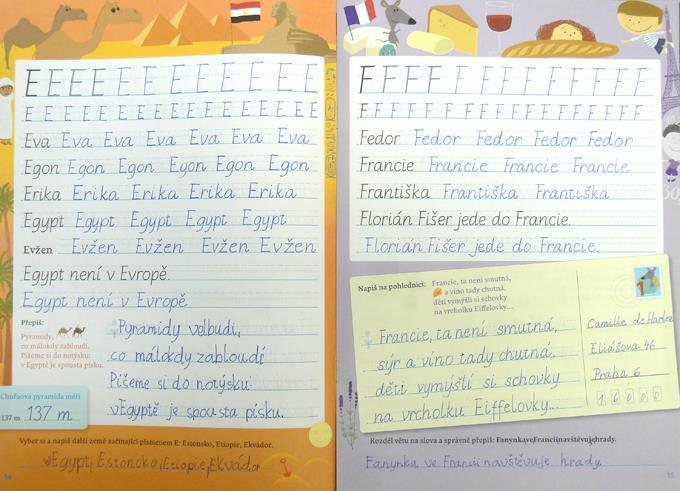 E E E E E E E E E E E
E E E E E E E E E E E E E E E E E
Eva Eva Eva Eva Eva Eva Eva
Egon Egon Egon Egon Egon Egon
Erika Erika Erika Erika Erika
Egypt Egypt Egypt Egypt Egypt
Evžen Evžen Evžen Evžen Evžen
Egypt není v Evropě.
Egypt není v Evropě
Přepiš:
Pyramidy,
co málokdy zabloudí.
Píšeme si do notýsku:
v Egyptě je spousta písku.
Pyramidy velbudi,
co málokdy zabloudí
Píšeme si do notýsku:
vEgyptě je spousta písku.
Chufuova pyramida měří
137 m 137 m
Vyber si a napiš další země začínající písmenem E: Estonsko, Etiopie, Ekvádor.
Egypt, Estoncko, Etiopie, Ekvádor
14
F F F F F F F F F F F F
F F F F F F F F F F F F F F F F F F
Fedor Fedor Fedor Fedor Fedor
Francie Francie Francie Francie
Františka Františka Františka
Florián Fišer jede do Francie.
Florián Fišer jede do Francie.
Napiš na pohlednici:
Francie, ta není smutná,
a víno tady chutná,
děti vymýšlí si schovky
na vrcholku Eiffelovky...
Francie, ta není smutná,
sýr a víno tady chutná.
děti vymýšlí si schovky
na vrcholku Eiffelovky...
Camille de
Eliášova 46
Praha 6
1 6 0 0 0
Rozděl větu na slova a správně přepiš: FanynkaveFranciinavštěvujehrady.
Fanynka ve Francii navštěvuje hrady.
15